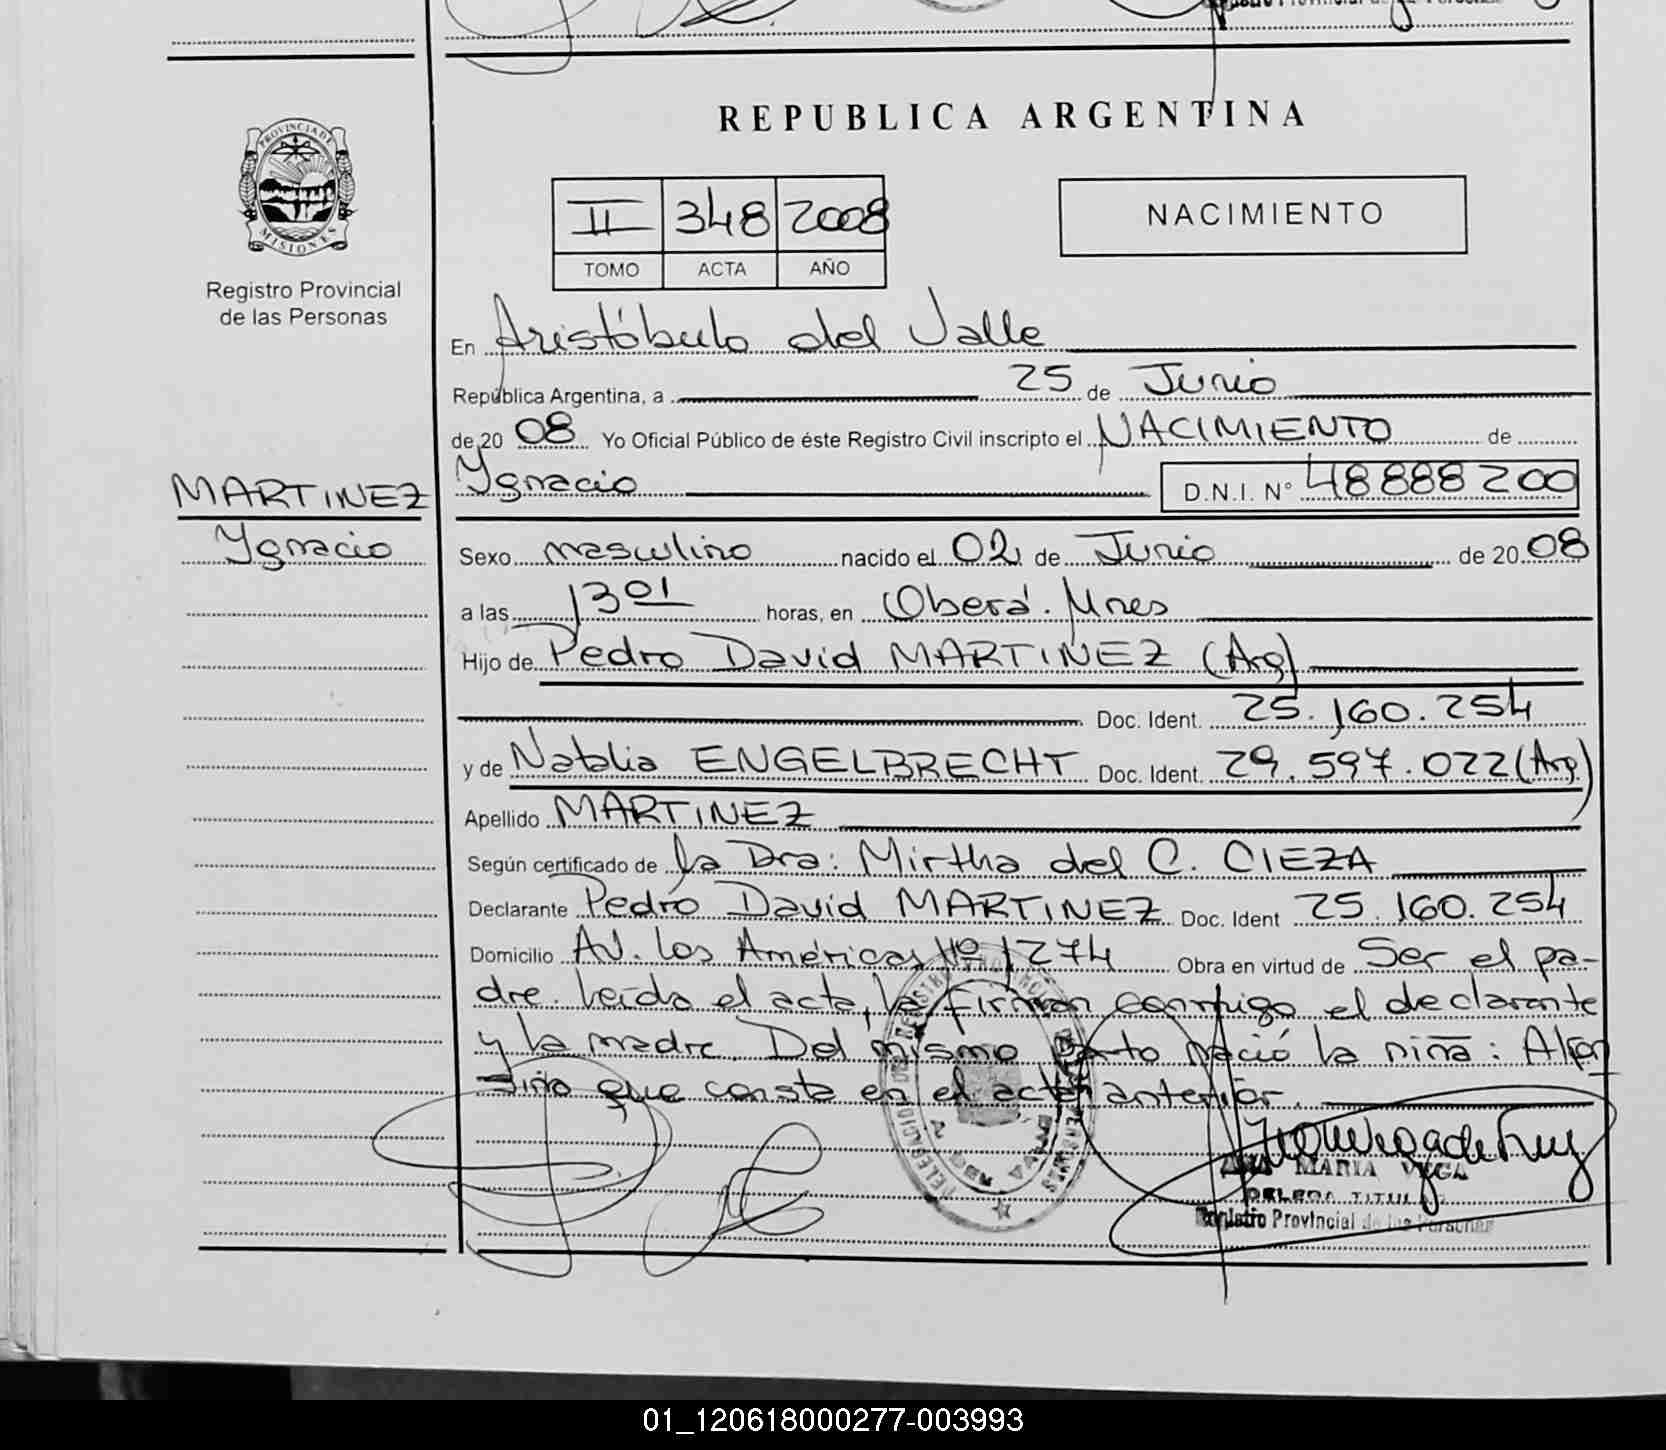 REPUBLICA ARGENTINA
PROVINCIA DE
MISIONES
Registro Provincial
de las Personas
II 348 2008
TOMO ACTA AÑO
NACIMIENTO
En Aristóbulo del Valle
República Argentina, a 25 de Junio
de 20 08 Yo Oficial Público de éste Registro Civil inscripto el NACIMIENTO de
MARTINEZ
Ygnacio
Ygnacio D.N.I. N° 48888200
Sexo masculino nacido el 02 de Junio de 20 08
a las 13 01 horas, en Oberá. Mnes
Hijo de Pedro David MARTINEZ (Arg)
Doc. Ident. 25.160.254
y de Natalia ENGELBRECHT Doc. Ident. 29.597.022 (Arg)
Apellido MARTINEZ
Según certificado de la Dra: Mirtha del C. CIEZA
Declarante Pedro David MARTINEZ Doc. Ident 25.160.254
Domicilio Av. Los Américas Nº 1274 Obra en virtud de Ser el pa-
dre. Leída el acta, la firman conmigo el declarante
y la madre. Del mismo parto nació la niña:
que consta en el acta anterior.
MARIA VEGA
Registro Provincial de las Personas
01_120618000277-003993